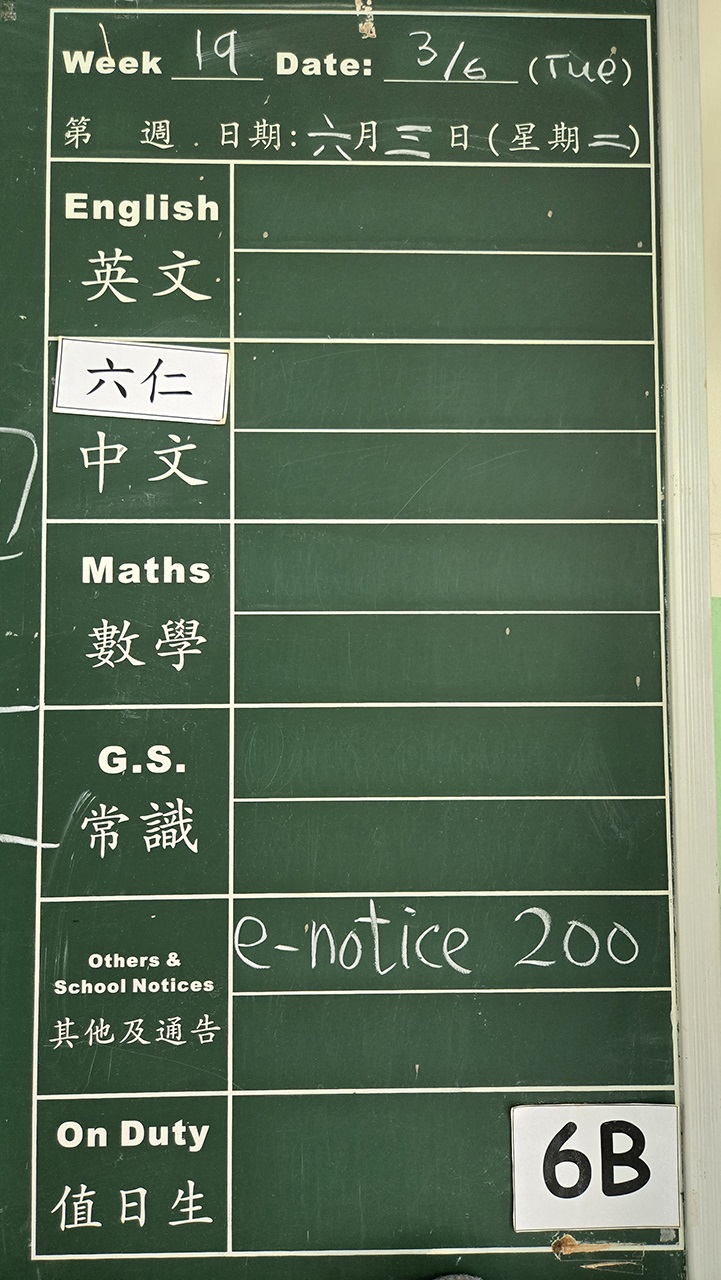 Week 19 Date: 3/6 (Tue)
第 週 日期:六月三日(星期二)
English
英文
六仁
中文
Maths
數學
G.S.
常識
e-notice 200
Others &
School Notices
其他及通告
On Duty
6B
值日生